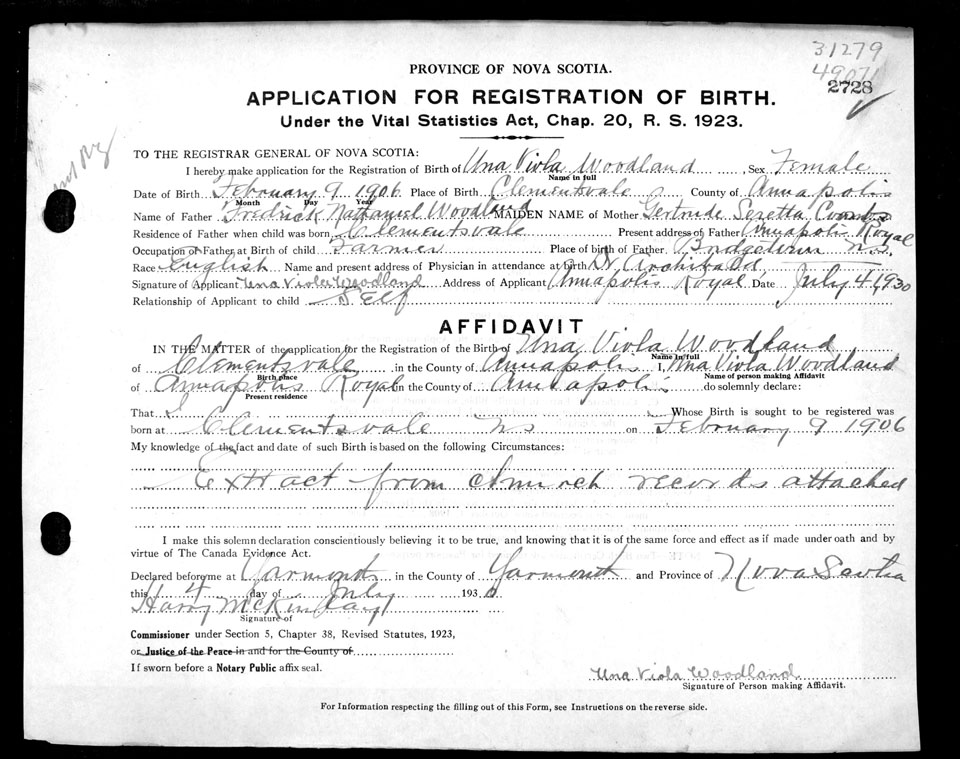 31279
49071
2728
PROVINCE OF NOVA SCOTIA.
APPLICATION FOR REGISTRATION OF BIRTH.
Under the Vital Statistics Act, Chap. 20, R. S. 1923.
TO THE REGISTRAR GENERAL OF NOVA SCOTIA:
I hereby make application for the Registration of Birth of Una Viola Woodland, Sex Female
Name in full
Date of Birth February 9 1906 Place of Birth Clementsvale County of Annapolis
Month Day Year
Name of Father Fredrick Nathaniel Woodland MAIDEN NAME of Mother Gertrude Seretta Coombs
Residence of Father when child was born Clementsvale Present address of Father Annapolis Royal
Occupation of Father at Birth of child Farmer Place of birth of Father Bridgetown N.S.
Race English Name and present address of Physician in attendance at birth Dr Archibald,
Signature of Applicant Una Viola Woodland Address of Applicant Annapolis Royal Date July 4, 1930
Relationship of Applicant to child Self
AFFIDAVIT
IN THE MATTER of the application for the Registration of the Birth of Una Viola Woodland
Name in full
of Clementsvale in the County of Annapolis I, Una Viola Woodland
Birth place Name of person making Affidavit
of Annapolis Royal in the County of Annapolis do solemnly declare:
Present residence
That I Whose Birth is sought to be registered was
born at Clementsvale NS on February 9 1906
My knowledge of the fact and date of such Birth is based on the following Circumstances:
Extract from church records attached
I make this solemn declaration conscientiously believing it to be true, and knowing that it is of the same force and effect as if made under oath and by
virtue of The Canada Evidence Act.
Declared before me at Yarmouth in the County of Yarmouth and Province of Nova Scotia
this 4 day of July 1930
Harry McKinlay
Signature of
Commissioner under Section 5, Chapter 38, Revised Statutes, 1923,
or Justice of the Peace in and for the County of
If sworn before a Notary Public affix seal.
Una Viola Woodland
Signature of Person making Affidavit.
For Information respecting the filling out of this Form, see Instructions on the reverse side.